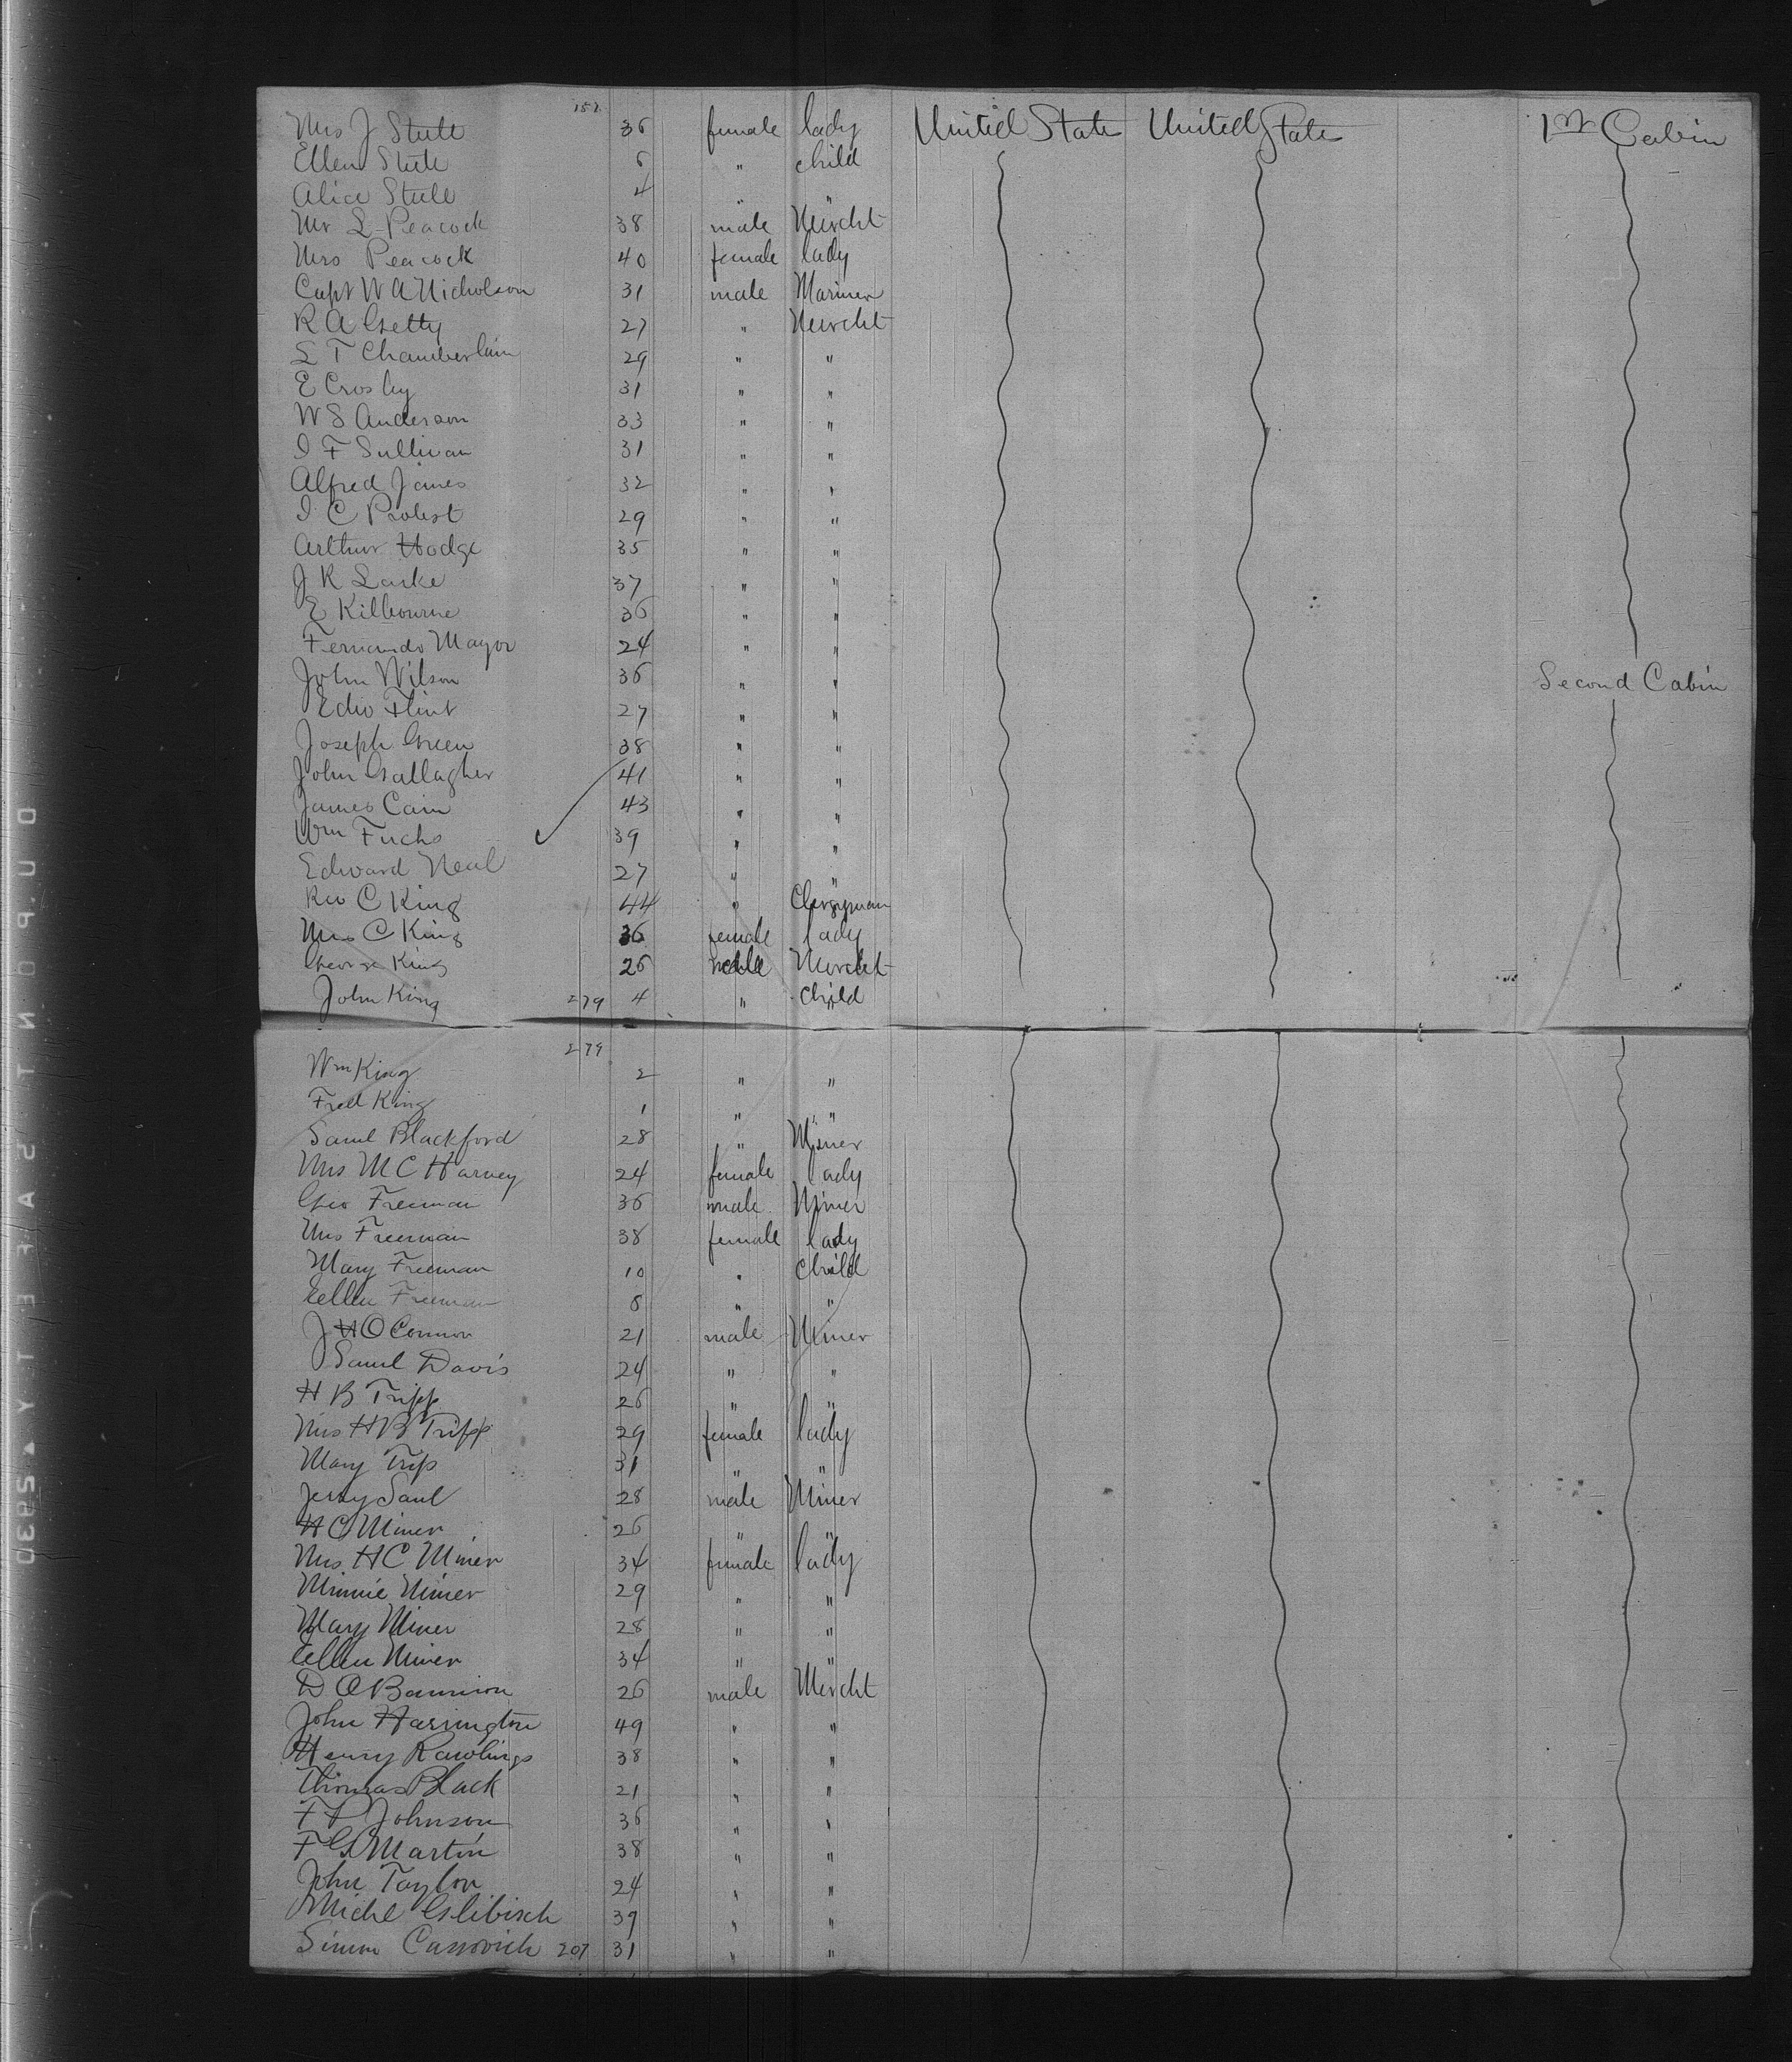 151
Mrs J Stull 36 female lady United State United State 1st Cabin
Ellen Stull 6 " child
Alice Stull 4 " "
Mr L Peacock 38 male Mercht
Mrs Peacock 40 female lady
Capt W A Nicholson 31 male Mariner
R A Getty 27 " Mercht
L T Chamberlain 29 " "
E Crosby 31 " "
W S Anderson 33 " "
I F Sullivan 31 " "
Alfred James 32 " "
I C Probst 29 " "
Arthur Hodge 35 " "
J R Larke 37 " "
E Kilbourne 36 " "
Fernando Mayor 24 " "
John Wilson 36 " " Second Cabin
Edw Flint 27 " "
Joseph Green 38 " "
John Gallagher 41 " "
James Cain 43 " "
Wm Fuchs 39 " "
Edward Neal 27 " "
Rev C King 44 " Clergyman
Mrs C King 36 female lady
George King 26 male Mercht
John King 279 4 " child
279
Wm King 2 " "
Fred King 1 " "
Saml Blackford 28 " Miner
Mrs M C Harvey 24 female lady
Geo Freeman 36 male Miner
Mrs Freeman 38 female lady
Mary Freeman 10 " child
Ellen Freeman 8 " "
J H O Connor 21 male Miner
Saml Davis 24 " "
H B Tripp 26 " "
Mrs H B Tripp 29 female lady
Mary Trip 31 " "
Jerry Saul 28 male Miner
H C Miner 26 " "
Mrs H C Miner 34 female lady
Minnie Miner 29 " "
Mary Miner 28 " "
Ellen Miner 34 " "
D O Bannion 26 male Mercht
John Harrington 49 " "
Henry Rawlings 38 " "
Thomas Black 21 " "
F P Johnson 36 " "
F G Martin 38 " "
John Taylor 24 " "
Michl Glibisch 39 " "
Simon Cassovich 207 31 " "